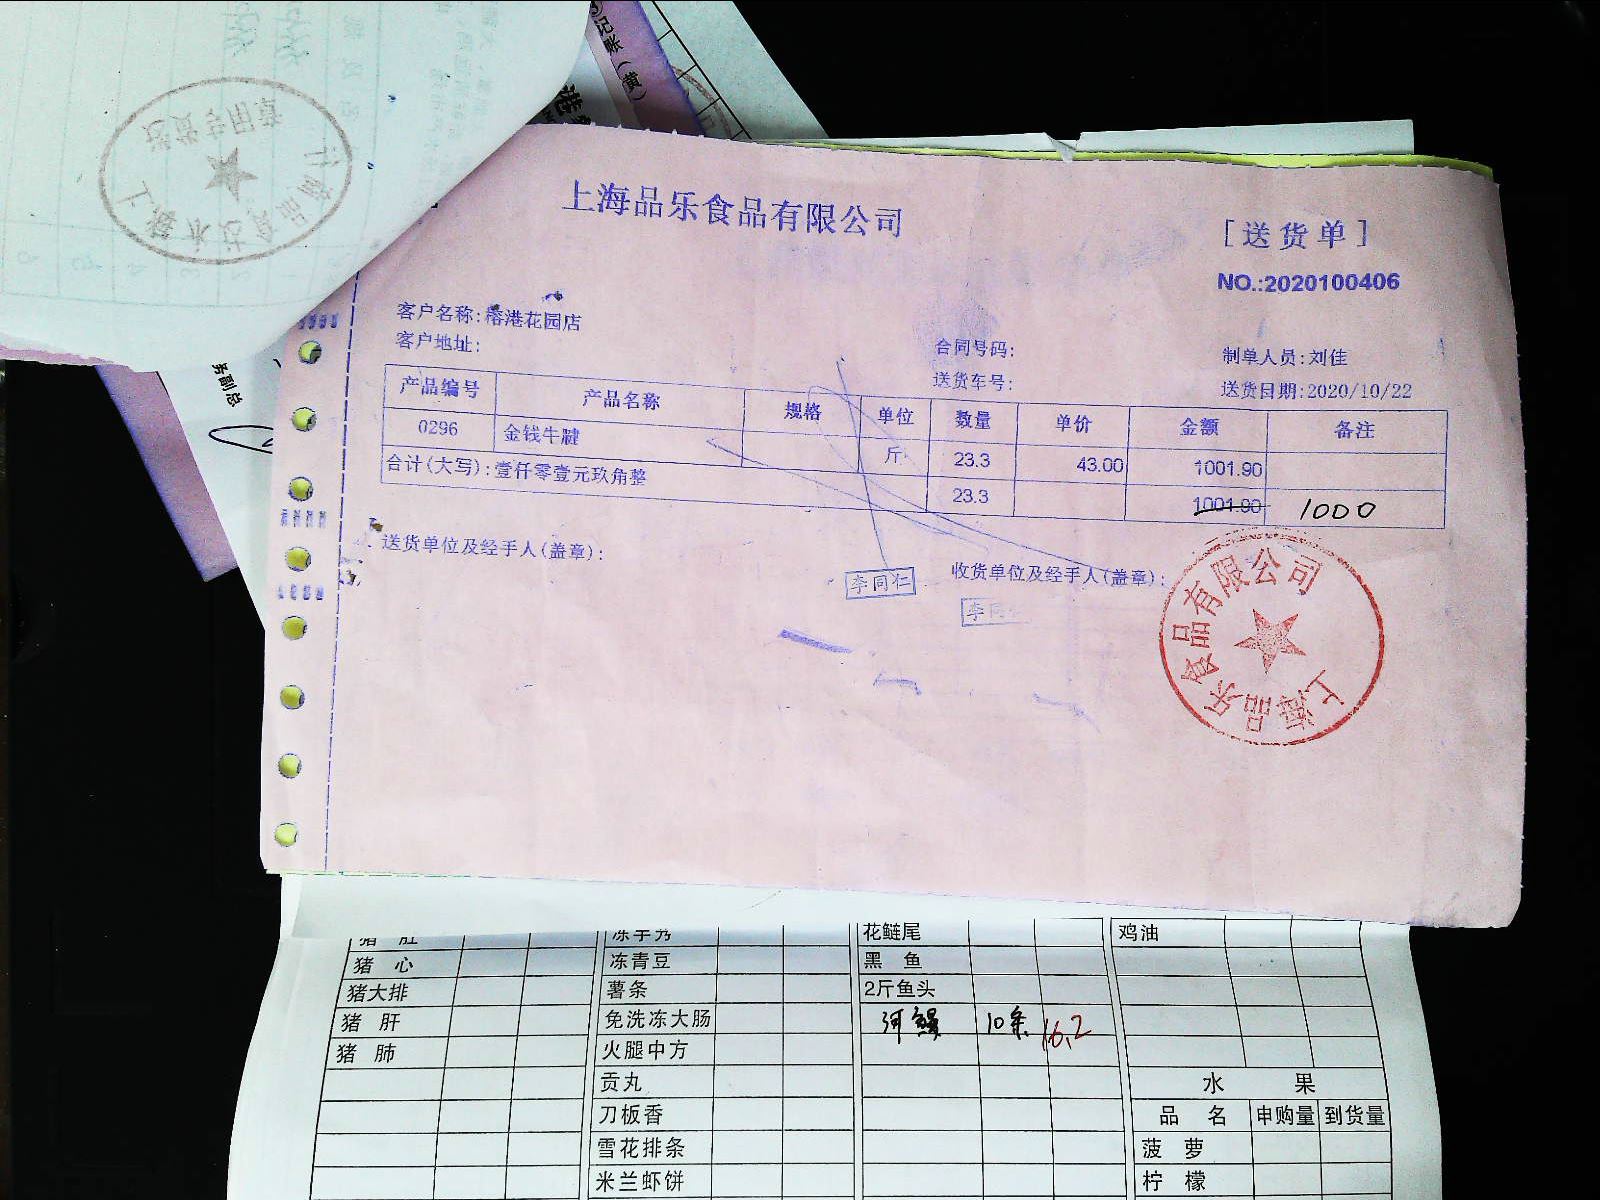 记账(黄)
送货专用章
务副总
上海品乐食品有限公司
[送货单]
NO.:2020100406
客户名称:榕港花园店
客户地址:
合同号码:
制单人员:刘佳
送货车号:
送货日期:2020/10/22
产品编号 产品名称 规格 单位 数量 单价 金额 备注
0296 金钱牛腱 斤 23.3 43.00 1001.90
合计(大写):壹仟零壹元玖角整 23.3 1001.90 1000
送货单位及经手人(盖章):
李同仁
收货单位及经手人(盖章):
李同
上海品乐食品有限公司
猪肚 冻芋艿 花鲢尾 鸡油
猪心 冻青豆 黑鱼
猪大排 薯条 2斤鱼头
猪肝 免洗冻大肠 河鳗 10条 16.2
猪肺 火腿中方
贡丸 水果
刀板香 品名 申购量 到货量
雪花排条 菠萝
米兰虾饼 柠檬